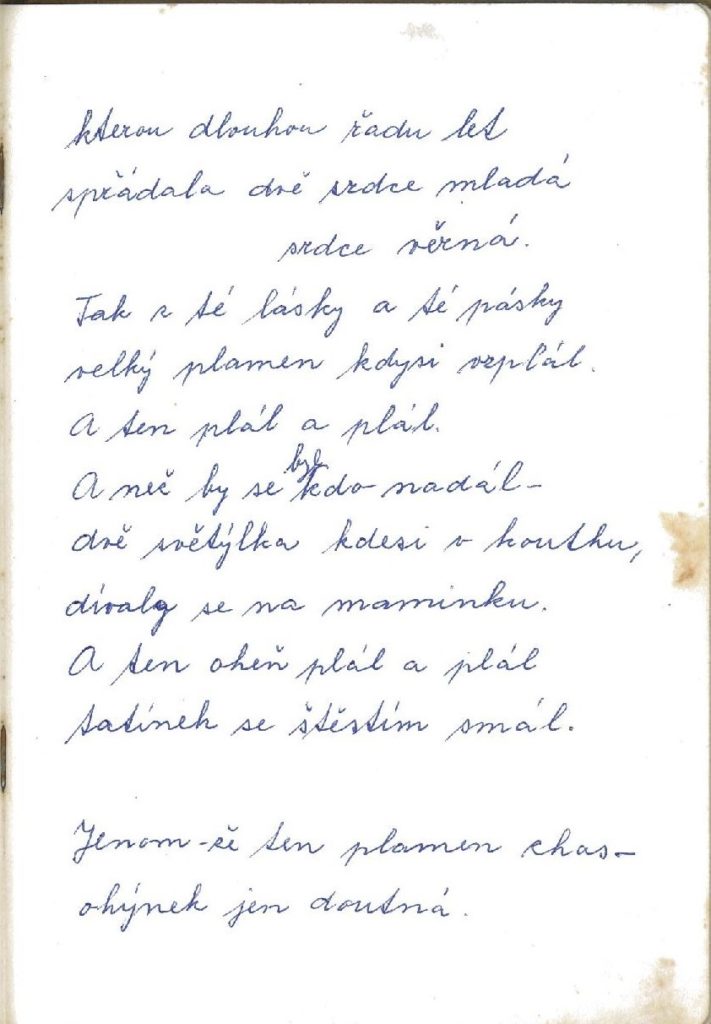 kterou dlouhou řadu let
spřádala dvě srdce mladá
srdce věrná.
Tak z té lásky a té pásky
velký plamen kdysi vzplál.
A ten plál a plál.
A neč by se byl kdo nadál –
dvě světýlka kdesi v koutku,
dívaly se na maminku.
A ten oheň plál a plál
tatínek se štěstím smál.
Jenom-že ten plamen chas–
ohýnek jen doutná.